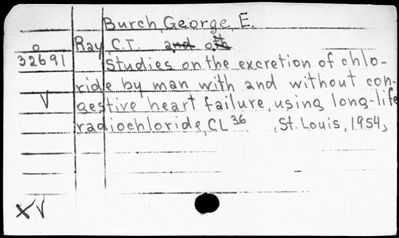 Burch, George, E.
o Ray C.T. and oth
32691 Studies on the excretion of chlo-
ride by man with and without con-
V gestive heart failure, using long-life
radiochloride, CL 36 , St. Louis, 1954,
XV